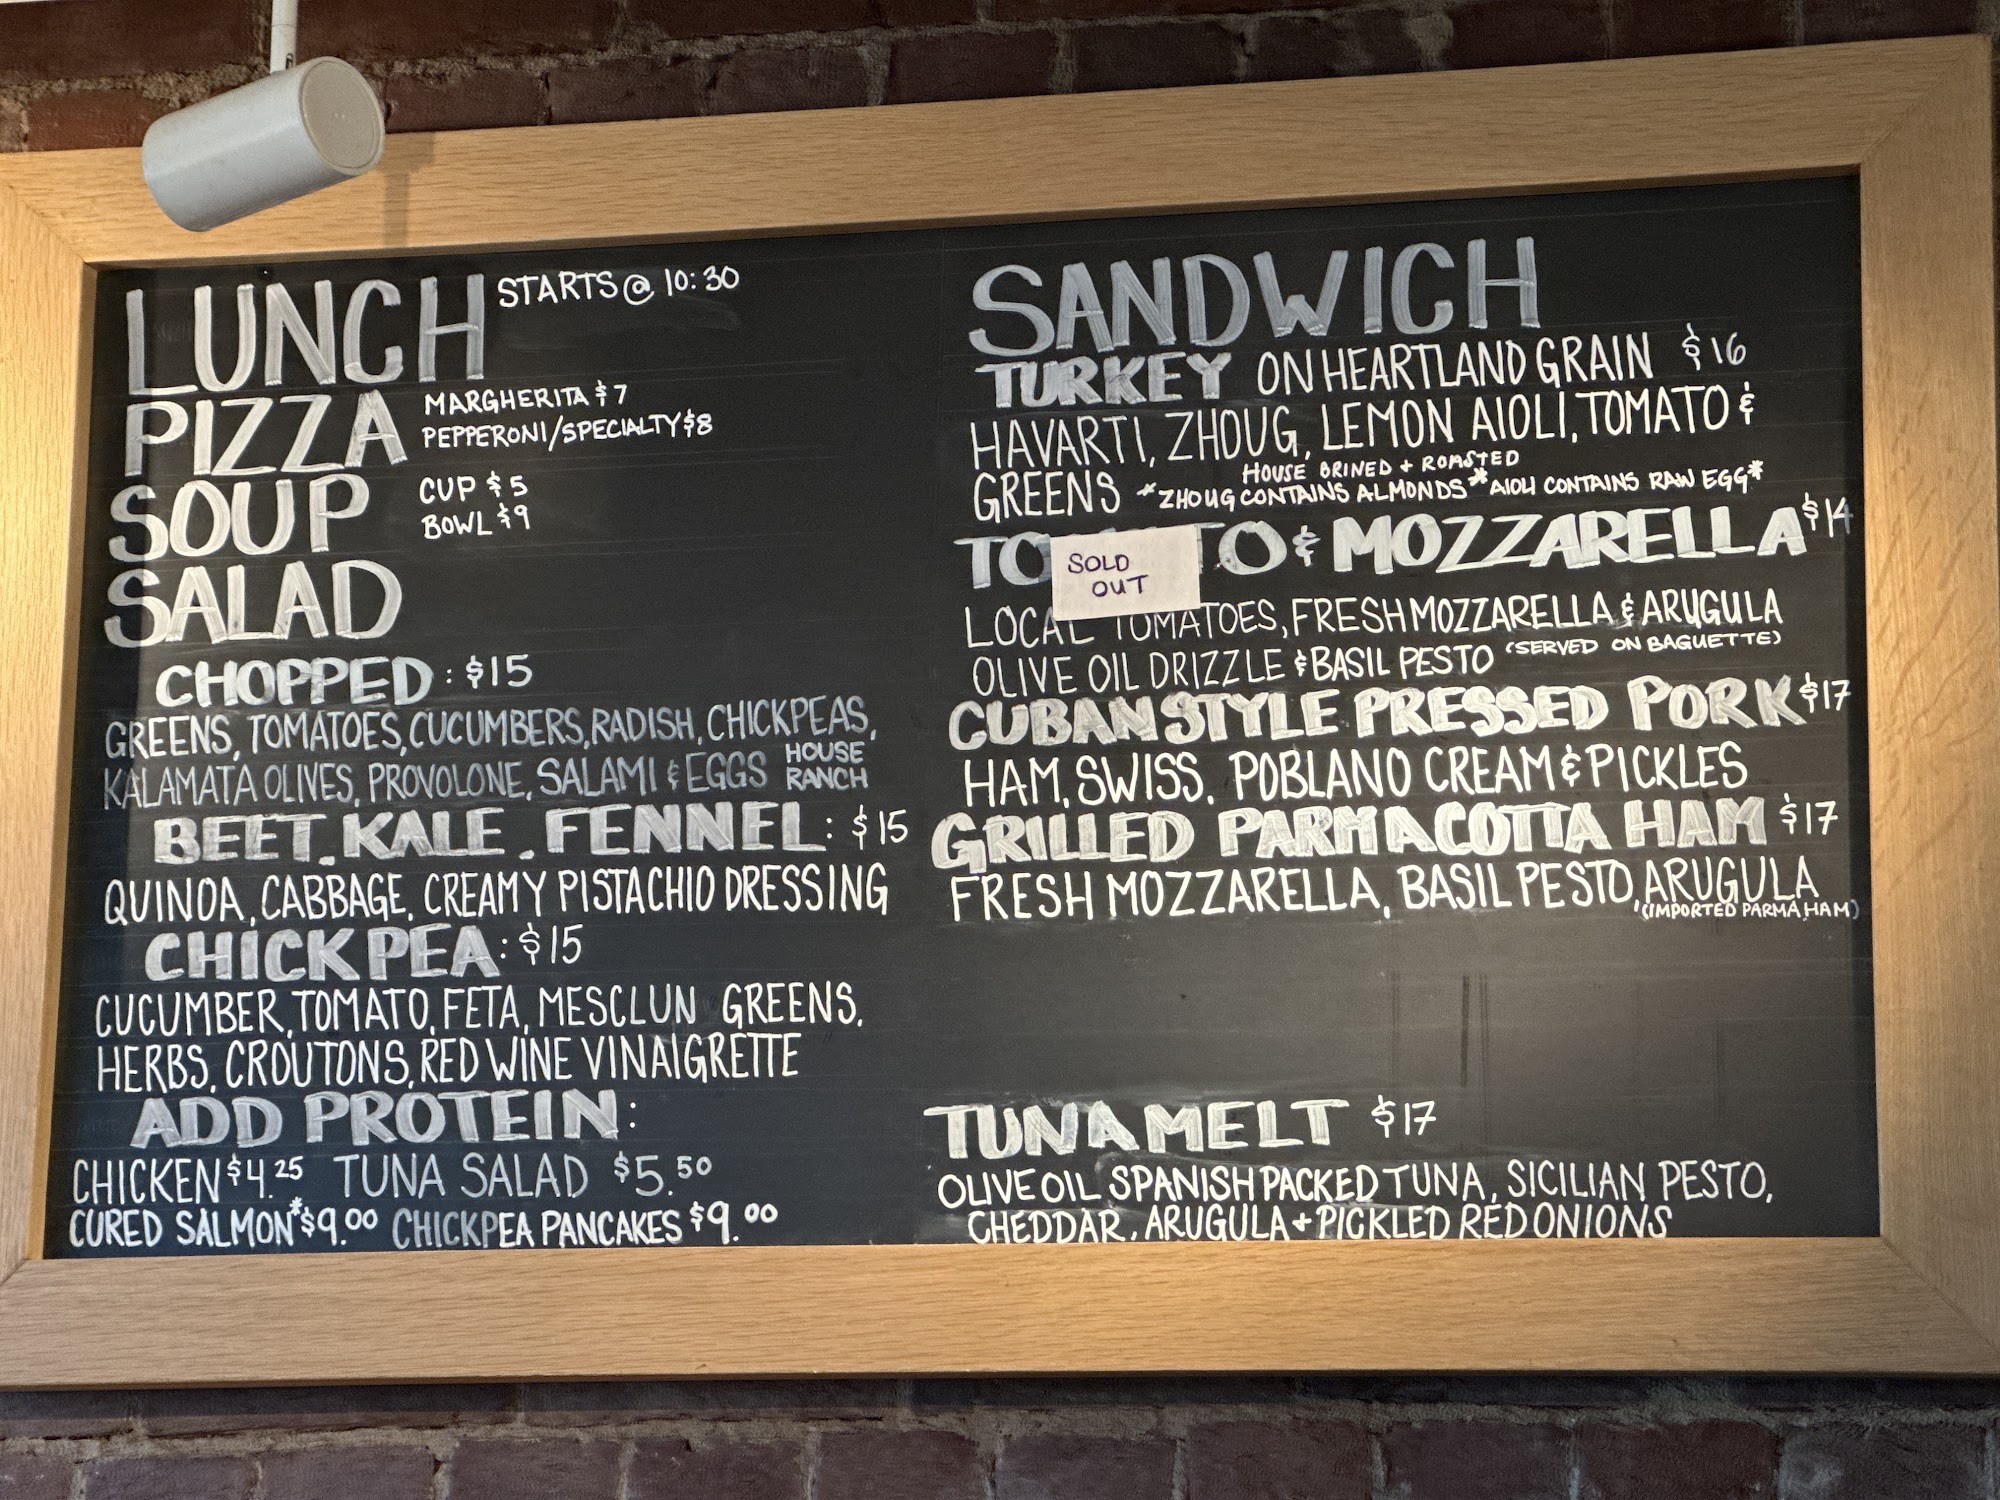 LUNCH STARTS @ 10:30
PIZZA MARGHERITA $7
PEPPERONI/SPECIALTY $8
SOUP CUP $5
BOWL $9
SALAD
CHOPPED: $15
GREENS, TOMATOES, CUCUMBERS, RADISH, CHICKPEAS,
KALAMATA OLIVES, PROVOLONE, SALAMI & EGGS HOUSE RANCH
BEET. KALE. FENNEL: $15
QUINOA, CABBAGE, CREAMY PISTACHIO DRESSING
CHICKPEA: $15
CUCUMBER, TOMATO, FETA, MESCLUN GREENS,
HERBS, CROUTONS, RED WINE VINAIGRETTE
ADD PROTEIN:
CHICKEN $4.25 TUNA SALAD $5.50
CURED SALMON* $9.00 CHICKPEA PANCAKES $9.00
SANDWICH
TURKEY ON HEARTLAND GRAIN $16
HAVARTI, ZHOUG, LEMON AIOLI, TOMATO &
GREENS HOUSE BRINED + ROASTED
*ZHOUG CONTAINS ALMONDS* AIOLI CONTAINS RAW EGG*
TO TO & MOZZARELLA $14
SOLD
OUT
LOCAL TOMATOES, FRESH MOZZARELLA & ARUGULA
OLIVE OIL DRIZZLE & BASIL PESTO (SERVED ON BAGUETTE)
CUBAN STYLE PRESSED PORK $17
HAM, SWISS, POBLANO CREAM & PICKLES
GRILLED PARMACOTTA HAM $17
FRESH MOZZARELLA, BASIL PESTO, ARUGULA
(IMPORTED PARMA HAM)
TUNA MELT $17
OLIVE OIL SPANISH PACKED TUNA, SICILIAN PESTO,
CHEDDAR, ARUGULA + PICKLED RED ONIONS